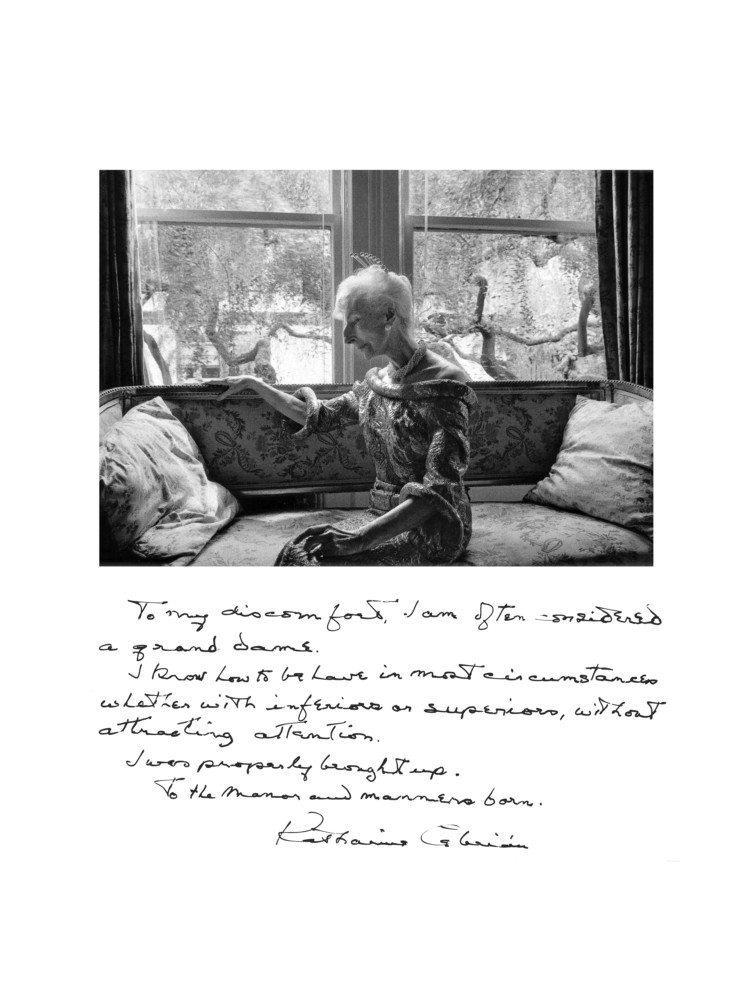 To my discomfort, I am often considered
a grand dame.
I know how to behave in most circumstances
whether with inferiors or superiors, without
attracting attention.
I was properly brought up.
To the Manor and manners born.
Katharine Cebrián